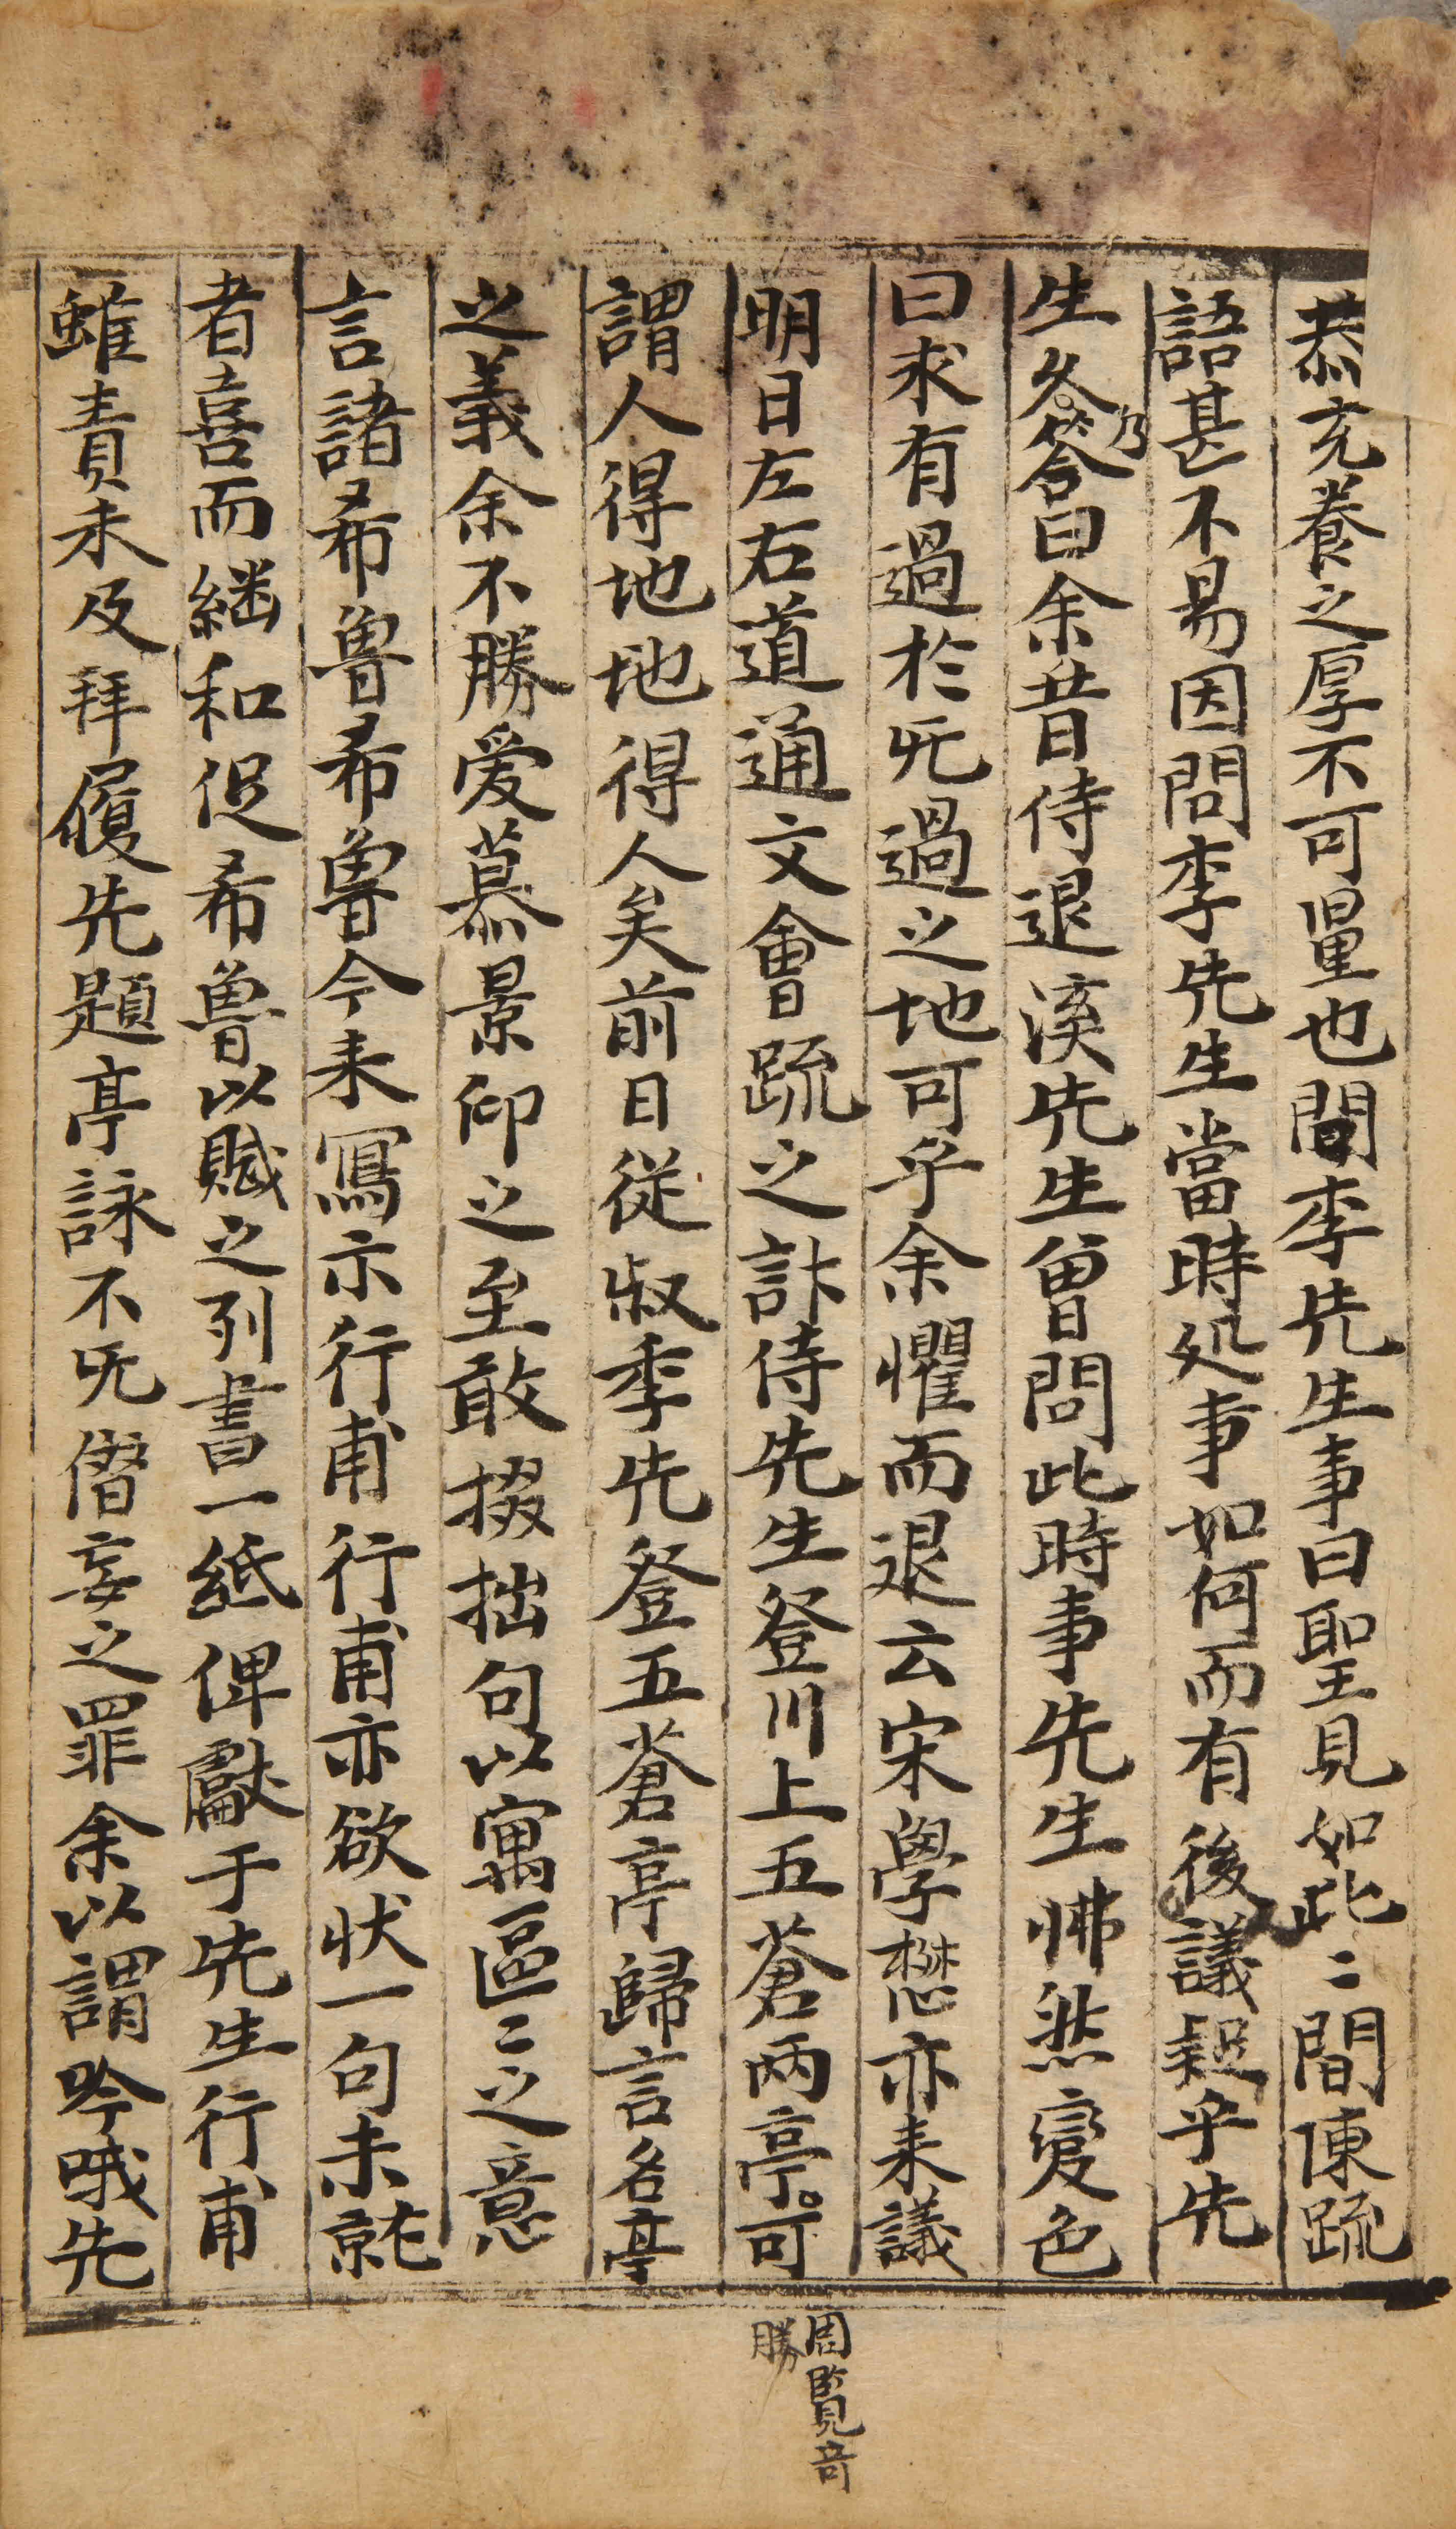 恭充養之厚不可量也問李先生事曰聖見如此〻間陳䟽
語甚不易因問李先生當時処事如何而有後議起乎先
生久乃答曰余昔侍退溪先生曾問此時事先生怫然變色
曰求有過於旡過之地可乎余懼而退云宋學懋亦来議
明日左右道通文會䟽之計侍先生登川上五蒼兩亭可
謂人得地地得人矣前日從叔季先登五蒼亭歸言名亭
之義余不勝愛慕景仰之至敢掇拙句以寓區〻之意
言諸希魯希魯今来寫示行甫行甫亦欲状一句未就
者喜而継和促希魯以賦之列書一紙俾獻于先生行甫
雖責未及拜履先題亭詠不旡僭妄之罪余以謂吟哦先
周覽奇
勝